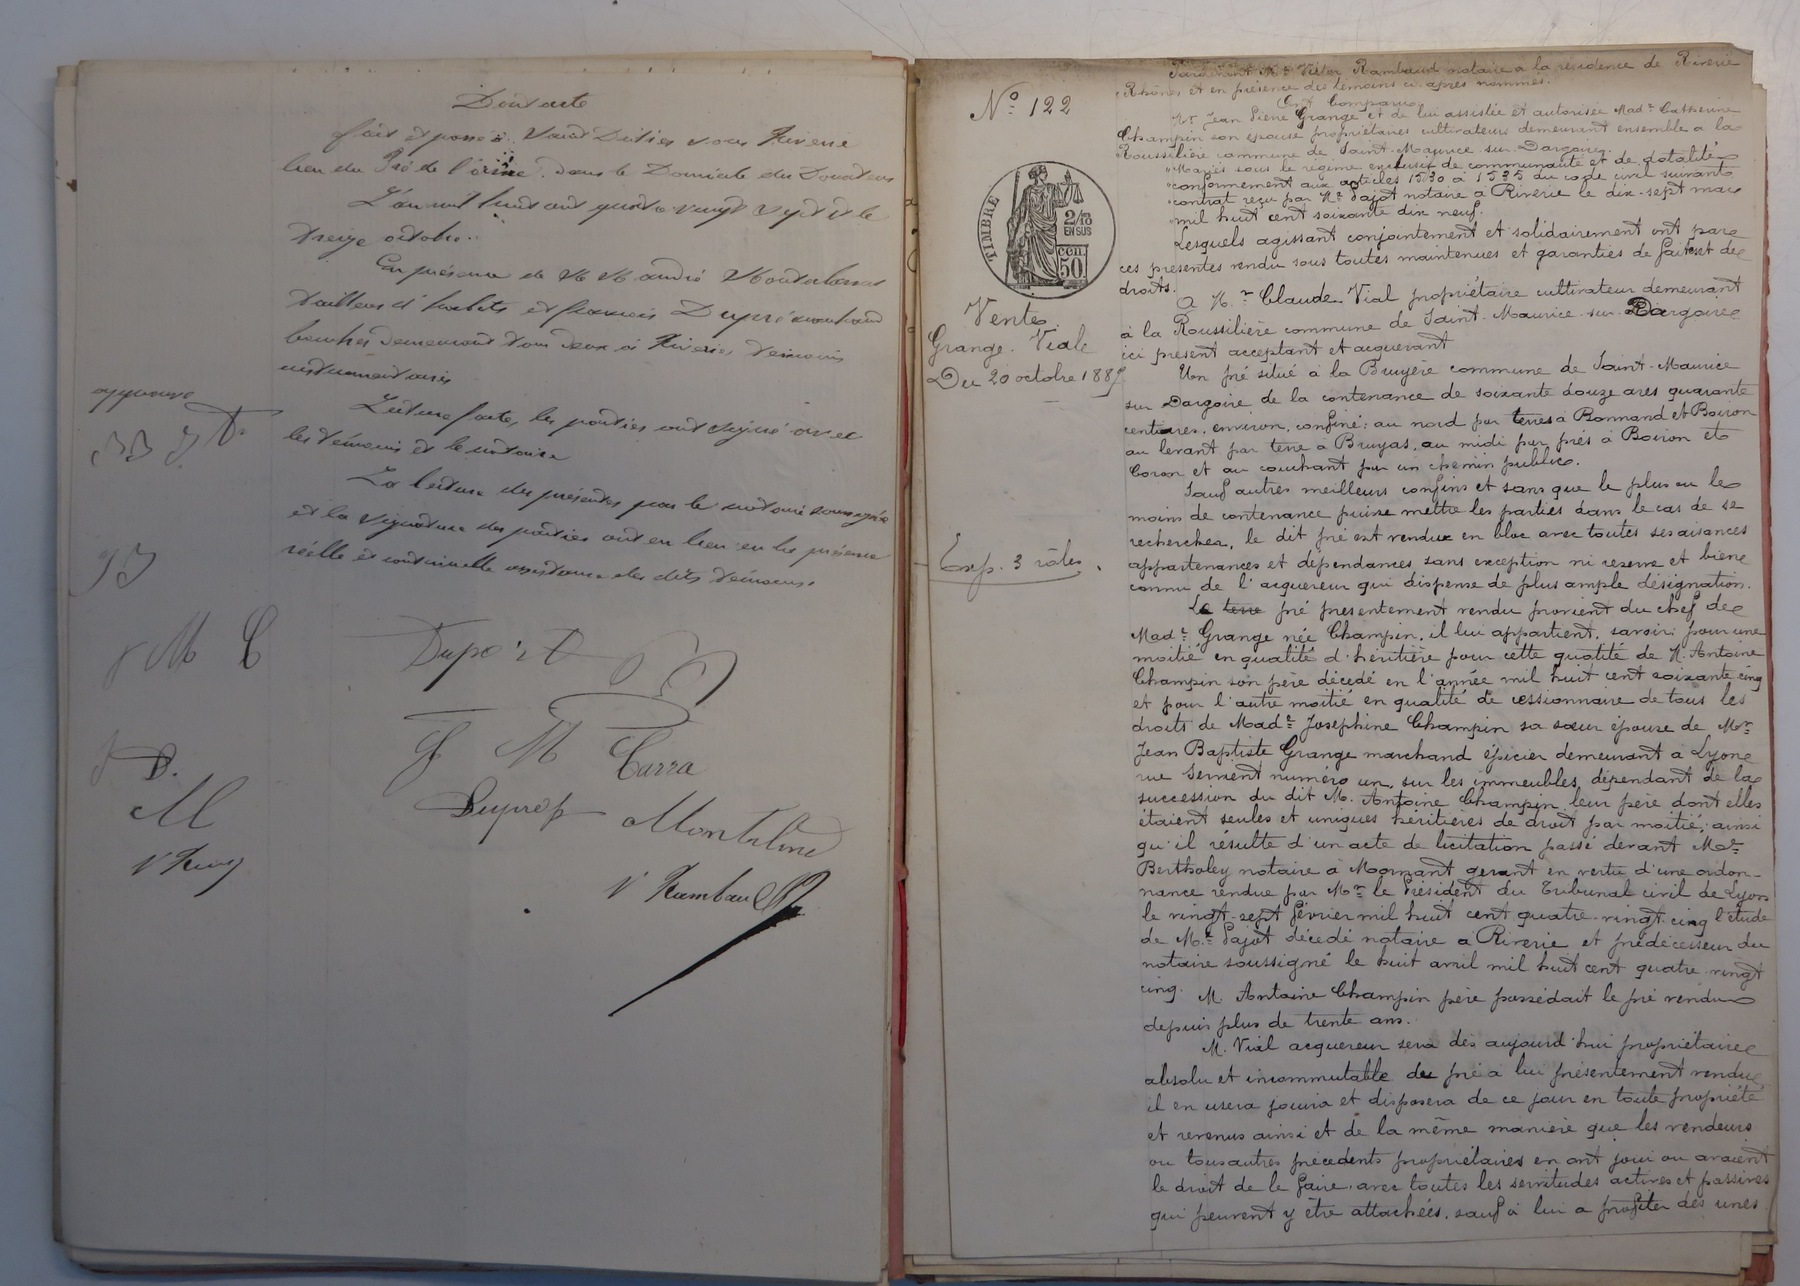 Dont acte
fait et passé à Saint Didier sous Riverie
lieu du Pré de l'orme dans le Domicile du Donateur
L'an mil huit cent quatre vingt sept et le
treize octobre.
En présence de M M andré
tailleur d'habits et francois Dupré marchand
boucher demeurant tous deux à Riverie, témoins
instrumentaires
Lecture faite, les parties ont signé avec
les témoins et le notaire
La lecture des présentes par le notaire soussigné
et la signature des parties ont eu lieu en la présence
réelle et continuelle assistance des dits témoins.
approuvé
J M C
M
J M Carra
V Rambaud
N° 122
TIMBRE
2/10
EN SUS
CEN.
50.
Vente
Grange - Viale
Du 20 octobre 1887
Exp. 3 rôles.
Pardevant Me Victor Rambaud notaire à la résidence de Riverie
(Rhône) et en présence des témoins ci après nommés.
Ont Comparu
Mr Jean Pierre Grange et de lui assistée et autorisée Made Catherine
Champin son épouse propriétaires cultivateurs demeurant ensemble à la
Roussilière commune de Saint-Maurice-sur-Dargoire.
Mariés sous le régime exclusif de communauté et de dotalité
conformément aux articles 1530 à 1535 du code civil suivant
contrat reçu par Me Pajot notaire à Riverie le dix-sept mai
mil huit cent soixante dix neuf.
Lesquels agissant conjointement et solidairement ont par
ces présentes vendu sous toutes maintenues et garanties de fait et de
droits.
A Mr Claude Vial propriétaire cultivateur demeurant
à la Roussilière commune de Saint-Maurice-sur-Dargoire
ici présent acceptant et acquérant
Un pré situé à la Bruyère commune de Saint-Maurice
sur Dargoire de la contenance de soixante douze ares quarante
centiares, environ, confiné: au nord par terres à Bonnand et Boiron
au levant par terre à Bruyas, au midi par prés à Boiron et
Coron et au couchant par un chemin public.
Sauf autres meilleurs confins et sans que le plus ou le
moins de contenance puisse mettre les parties dans le cas de se
rechercher, le dit pré est vendu en bloc avec toutes ses aisances
appartenances et dépendances sans exception ni réserve et bien
connu de l'acquéreur qui dispense de plus ample désignation.
Le terre pré présentement vendu provient du chef de
Made Grange née Champin, il lui appartient, savoir: pour une
moitié en qualité d'héritière pour cette quotité de M. Antoine
Champin son père décédé en l'année mil huit cent soixante cinq
et pour l'autre moitié en qualité de cessionnaire de tous les
droits de Made Joséphine Champin sa sœur épouse de Mr
Jean Baptiste Grange marchand épicier demeurant à Lyon
rue Serment numéro un, sur les immeubles, dépendant de la
succession du dit M. Antoine Champin leur père dont elles
étaient seules et uniques héritières de droit par moitié; ainsi
qu'il résulte d'un acte de licitation passé devant Me
Bertholey notaire à Mornant gérant en vertu d'une ordon-
nance rendue par Mr le Président du Tribunal civil de Lyon
le vingt-sept février mil huit cent quatre-vingt-cinq l'étude
de Me Pajot décédé notaire à Riverie et prédécesseur du
notaire soussigné le huit avril mil huit cent quatre-vingt
cinq.
M. Antoine Champin père possédait le pré vendu
depuis plus de trente ans.
M. Vial acquéreur sera dès aujourd'hui propriétaire
absolu et incommutable du pré à lui présentement vendu,
il en usera jouira et disposera de ce jour en toute propriété
et revenus ainsi et de la même manière que les vendeurs
ou tous autres précédents propriétaires en ont joui ou avaient
le droit de le faire, avec toutes les servitudes actives et passives
qui peuvent y être attachées, sauf à lui à profiter des unes